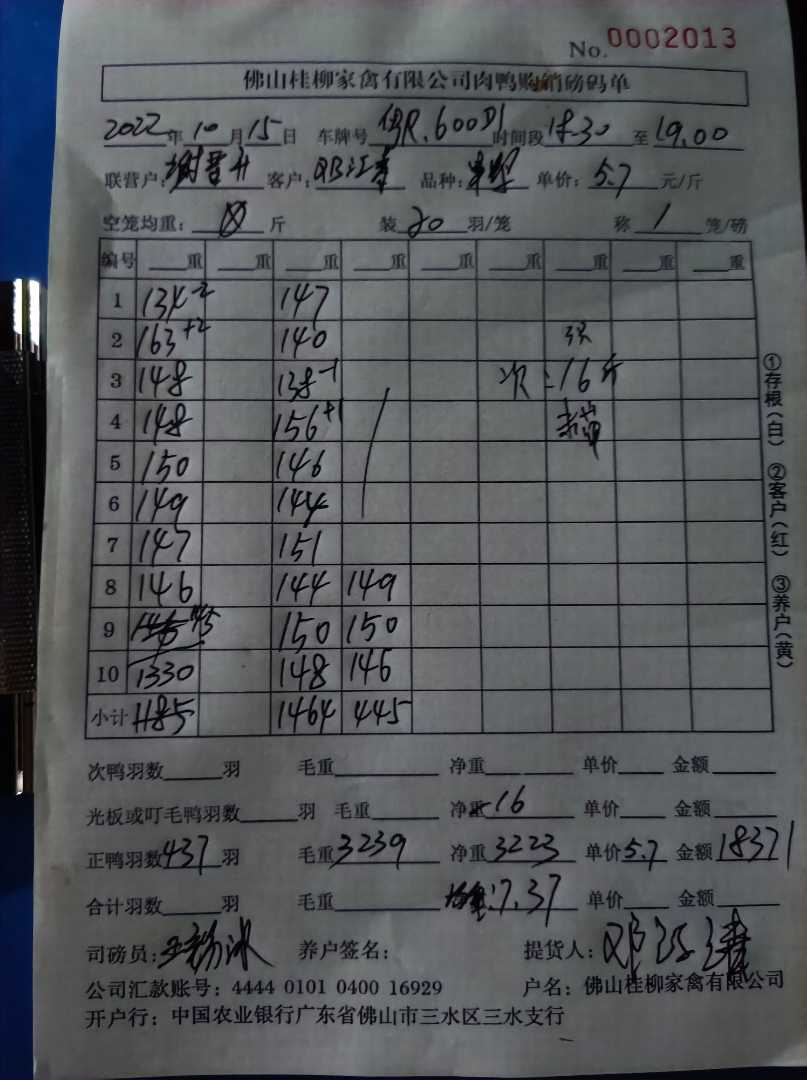 No. 0002013
佛山桂柳家禽有限公司肉鸭购销磅码单
2022年10月15日 车牌号 R.600D1 时间段 18.30 至 19.00
联营户: 谢晋升 客户: 邓江涛 品种: 单价: 5.7 元/斤
空笼均重: 斤 装 20 羽/笼 称 1 笼/磅
编号 重 重 重 重 重 重 重 重 重
1 134-2 147
2 163+2 140
3 148 138-1 次: 16斤
4 148 156+1
5 150 146
6 149 144
7 147 151
8 146 144 149
9 145 150 150
10 1330 148 146
小计 1185 1464 445
①存根(白) ②客户(红) ③养户(黄)
次鸭羽数 羽 毛重 净重 单价 金额
光板或叮毛鸭羽数 羽 毛重 净重 -16 单价 金额
正鸭羽数 437 羽 毛重 3239 净重 3223 单价 5.7 金额 18371
合计羽数 羽 毛重 均重: 7.37 单价 金额
司磅员: 养户签名: 提货人: 邓江涛
公司汇款账号: 4444 0101 0400 16929 户名: 佛山桂柳家禽有限公司
开户行: 中国农业银行广东省佛山市三水区三水支行